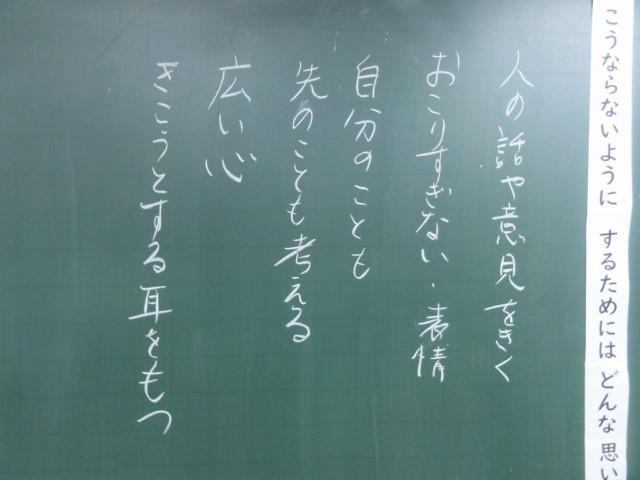 こうならないように するためには どんな 思い
人の話や意見をきく
おこりすぎない・表情
自分のことも
先のことも考える
広い心
きこうとする耳をもつ